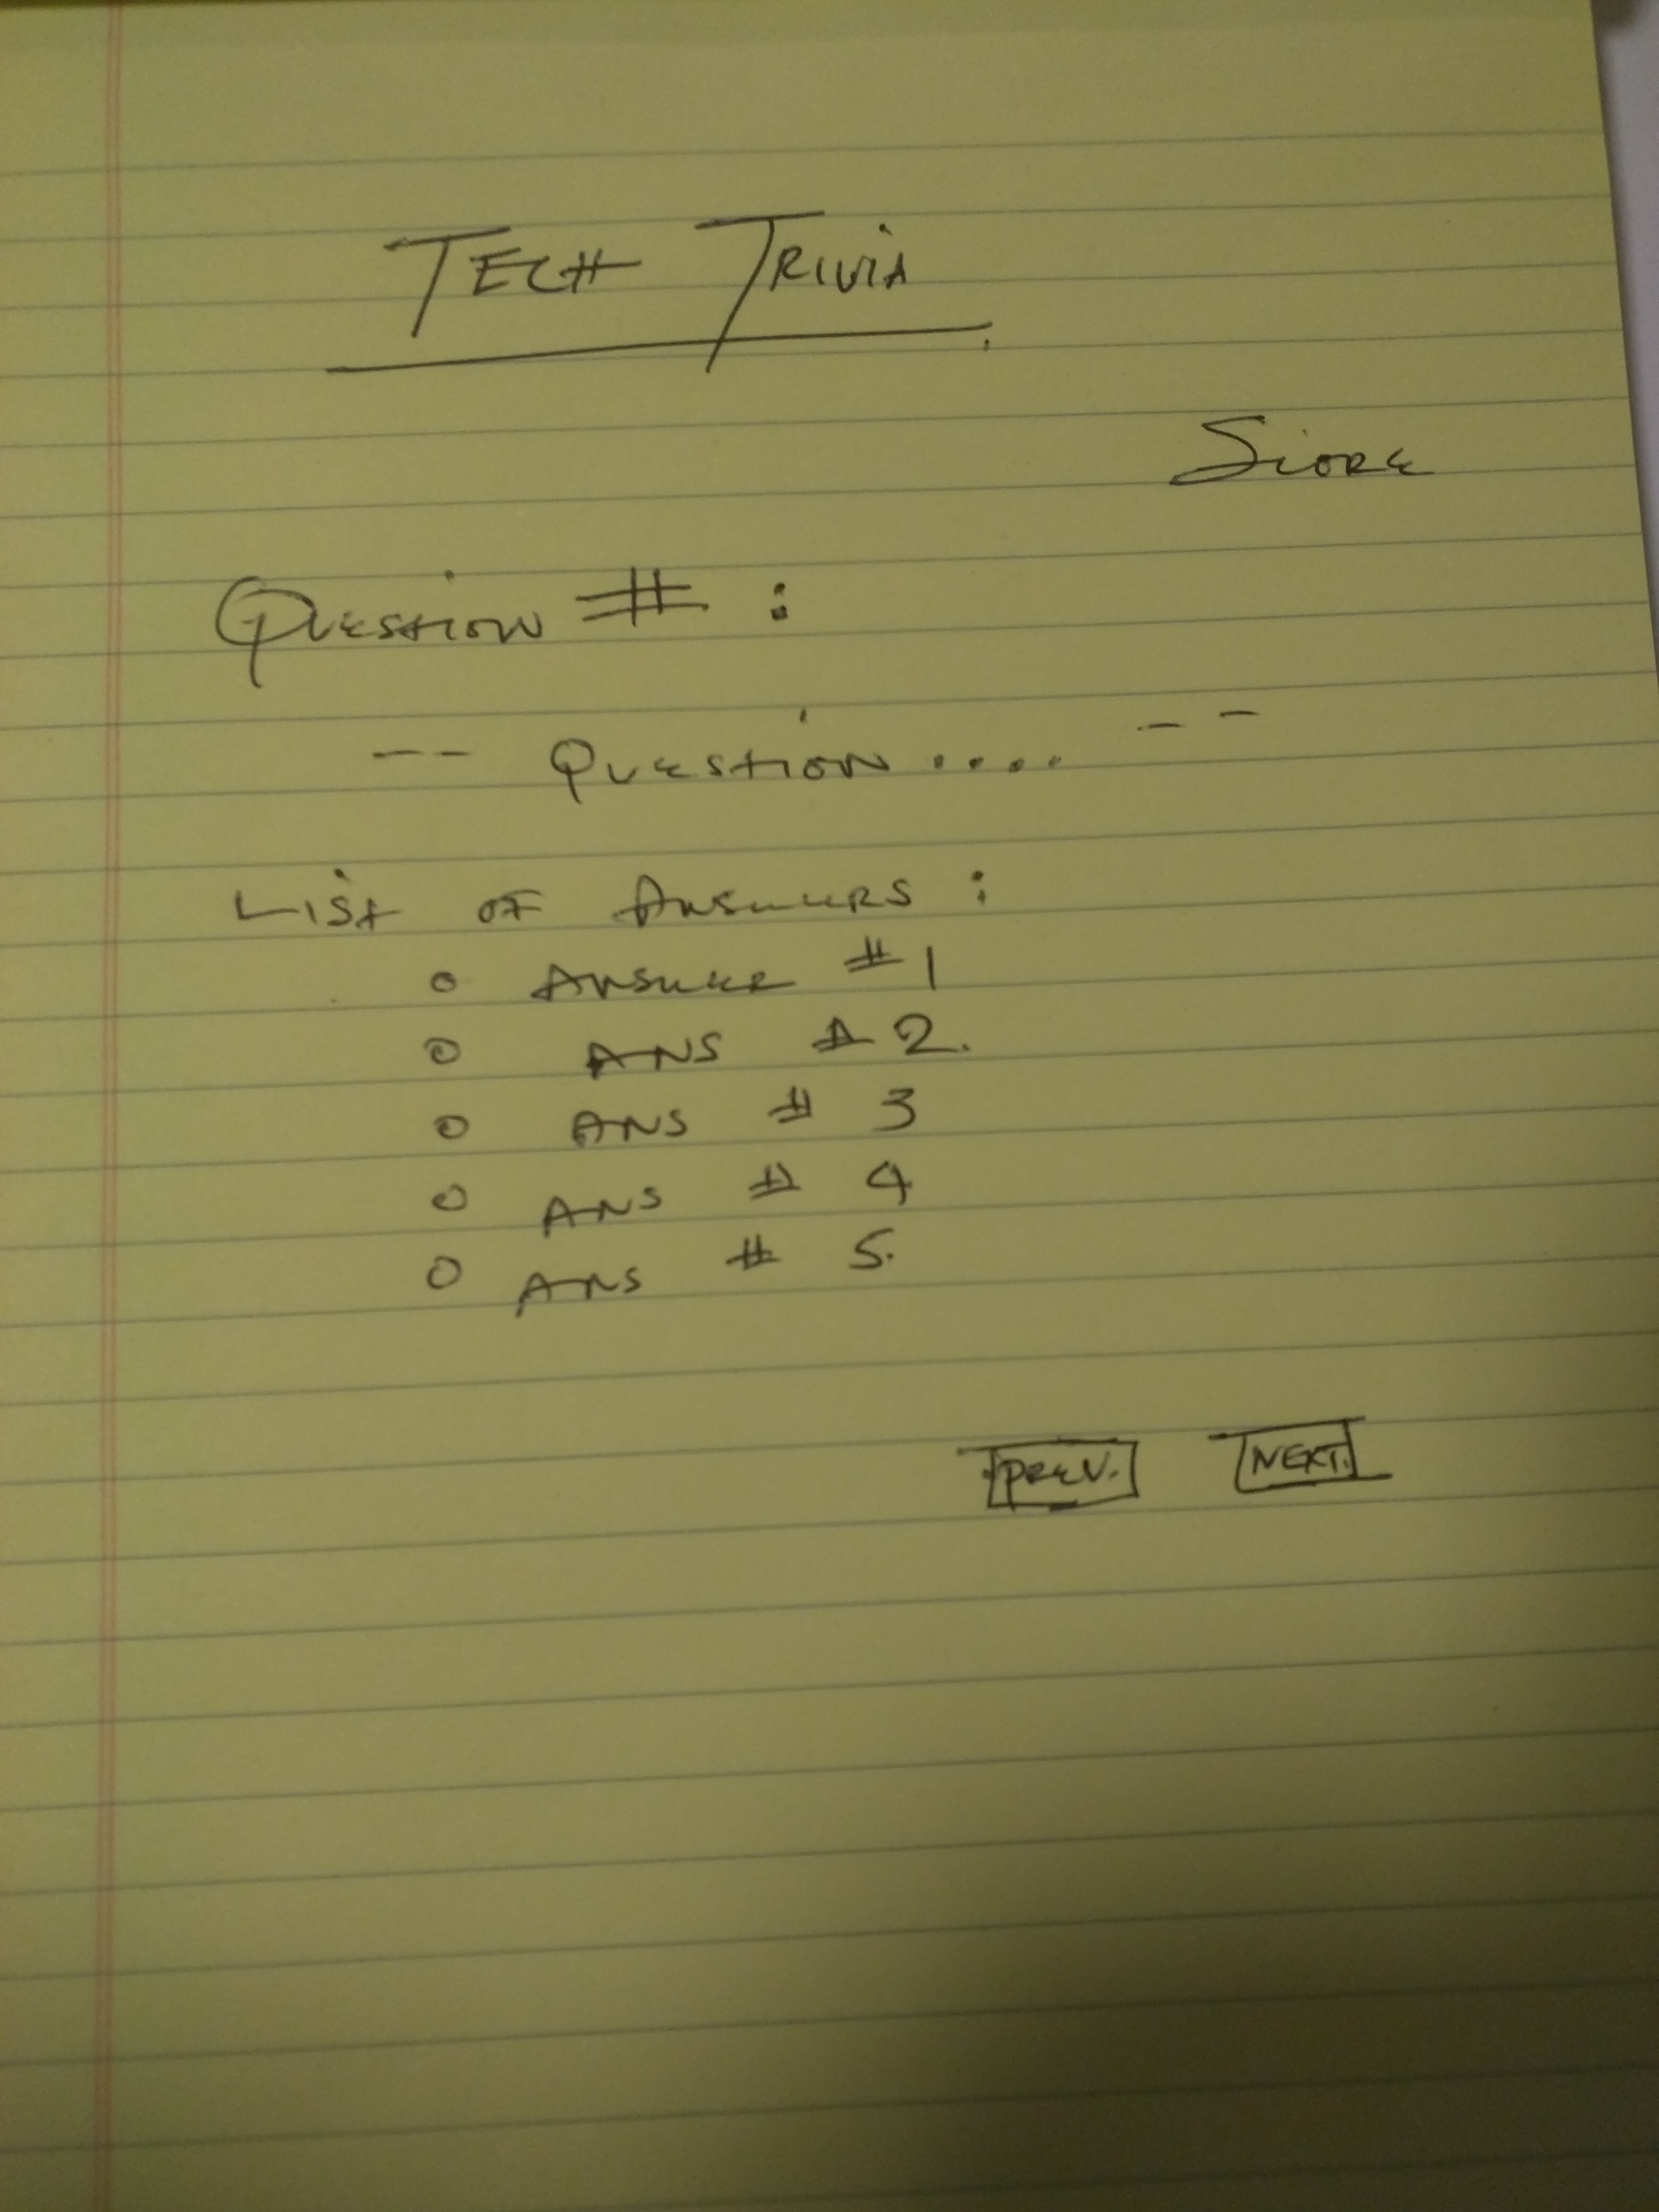 TECH TRIVIA
Score
Question # :
-- Question .... --
List of Answers :
o Answer #1
o ANS #2.
o ANS # 3
o ANS # 4
o ANS # 5.
PREV. NEXT.